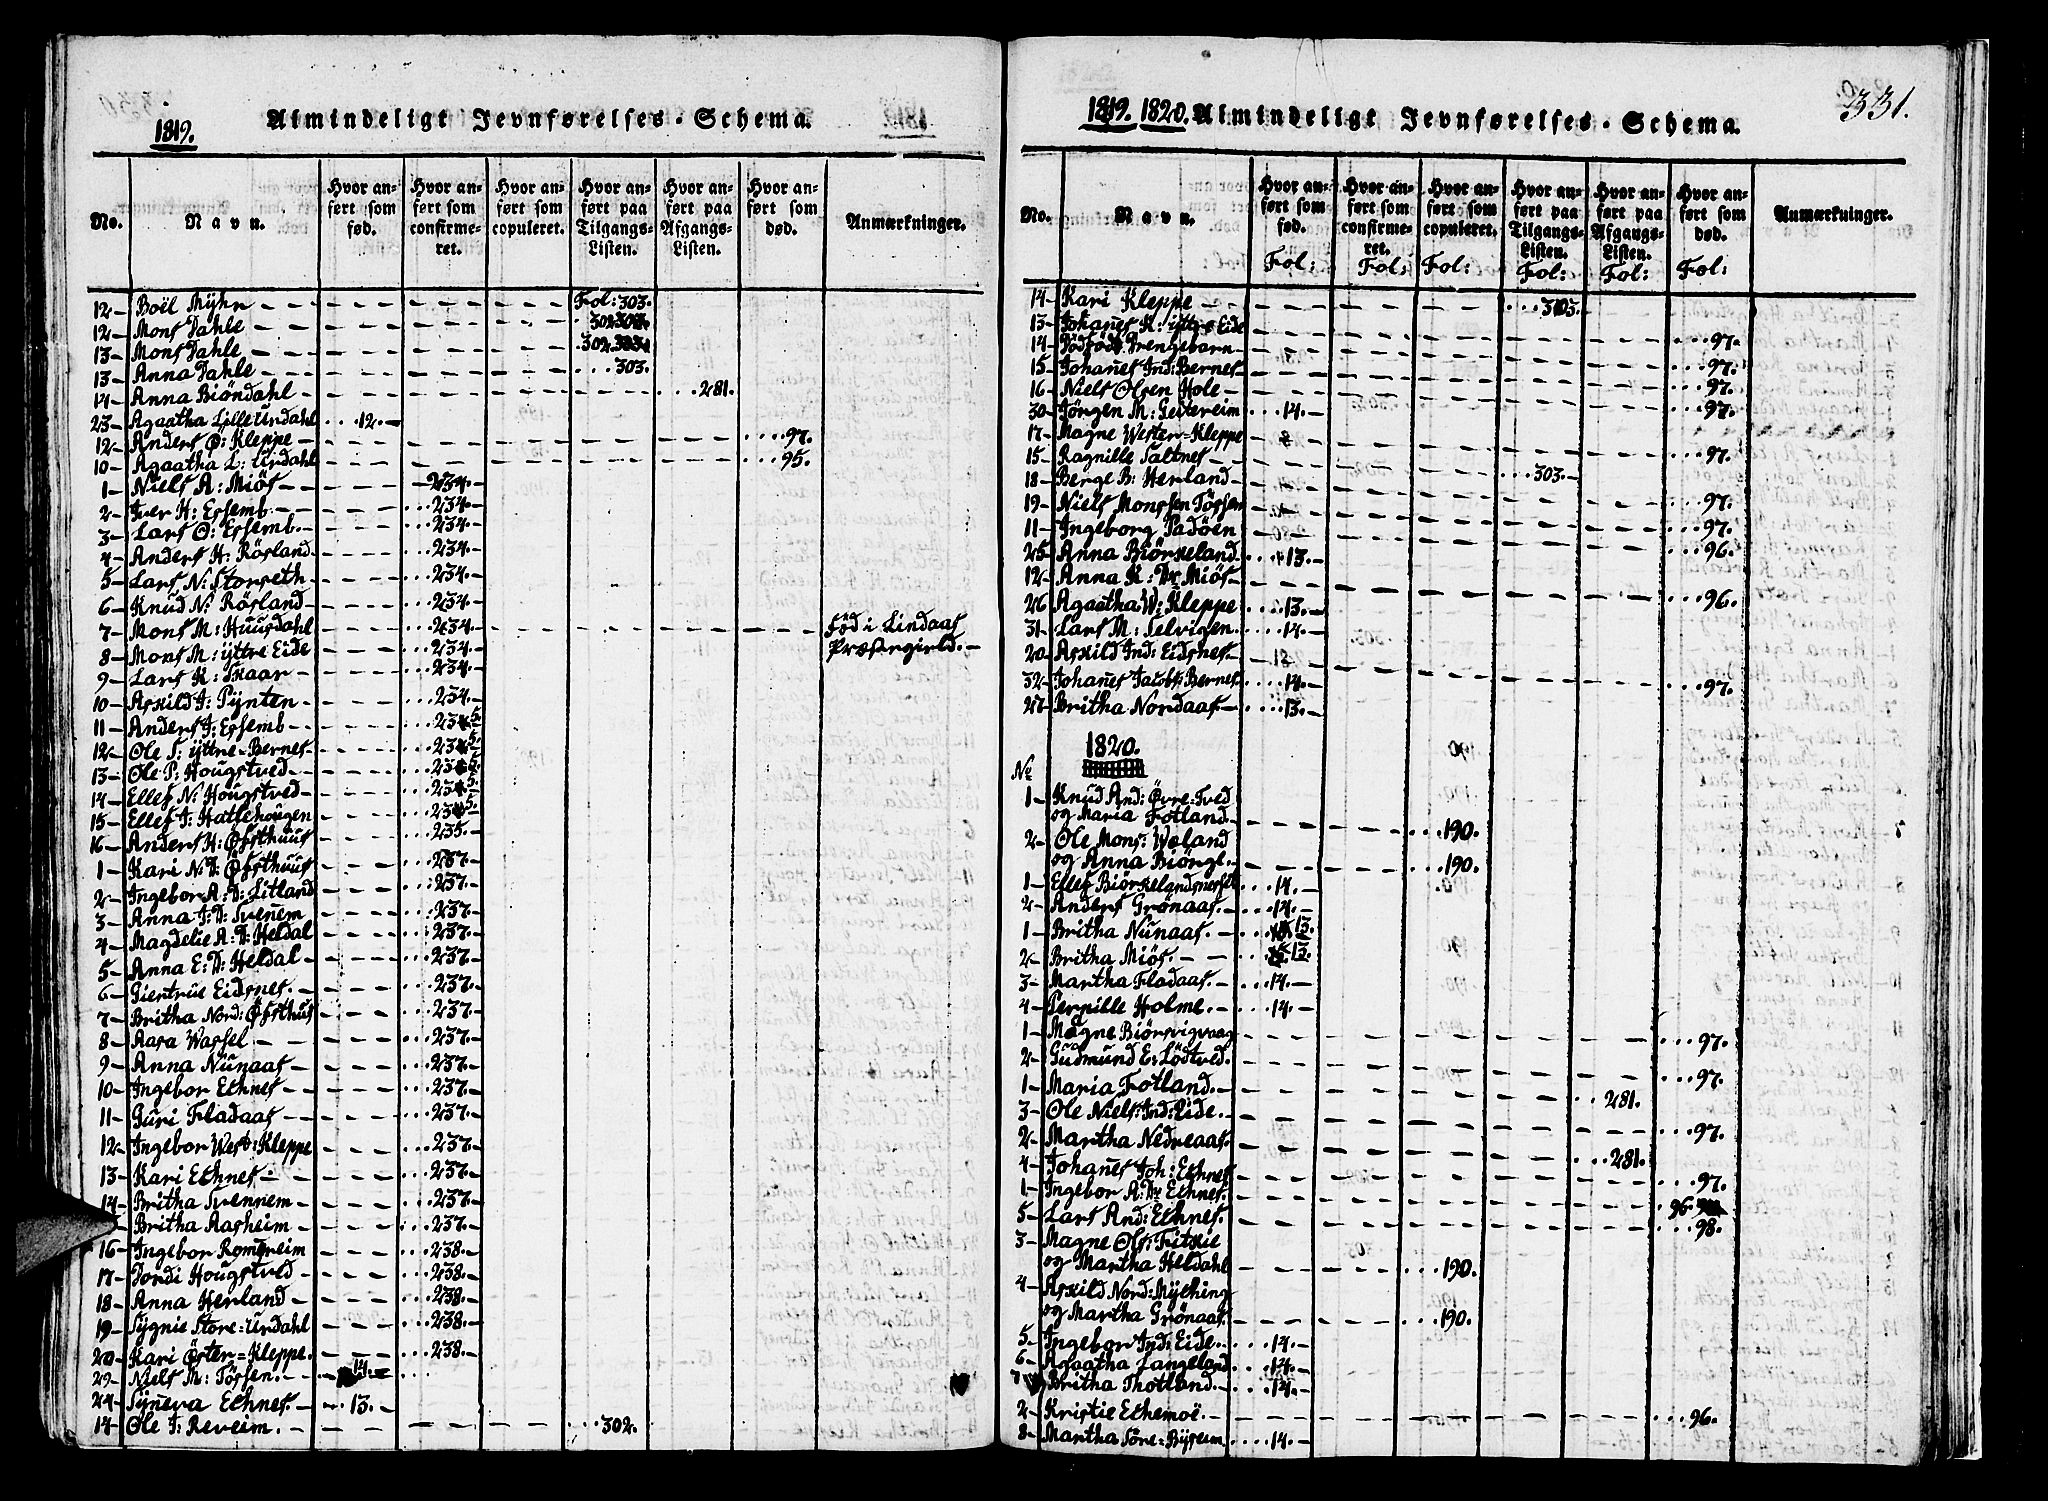 1819. Almindeligt Jevnførelses-Schema.
No. Navn. Hvor anført som fød. Hvor anført som confirmeret. Hvor anført som copuleret. Hvor anført paa Tilgangs-Listen. Hvor anført paa Afgangs-Listen. Hvor anført som død. Anmærkninger.
12 Boël Myhr Fol: 303.
12 Mons Dahle 302
13 Mons Dahle 302
13 Anna Dahle 303.
14 Anna Biöndahl 281.
23 Agaatha Lille Urdahl 12.
12 Anders O: Kleppe 97.
10 Agaatha L: Urdahl 95.
1 Niels A: Miös 234.
2 Iver H: Essemb. 234.
3 Lars O: Essemb. 234.
4 Anders H: Rösland 234.
5 Lars N: Storseth 234.
6 Knud N: Rösland 234.
7 Mons M: Huusdahl 234. Föd i Lindaas
8 Mons M: yttre Eide 234. Præstegield.
9 Lars K: Skaar 234.
10 Askild J: Tynten 234.
11 Anders J: Essemb 235.
12 Ole S: yttre-Bernes 235.
13 Ole P: Hougstved 235.
14 Ellef N: Hougstved 235.
15 Ellef J: Hattehougen 235.
16 Anders H: Östhuus 235.
1 Kari N: D: Östhuus 237.
2 Ingebor A: D: Litland 237.
3 Anna J: D: Svenem 237.
4 Magdelie A: D: Heldal 237.
5 Anna E: D: Heldal 237.
6 Giertrue Eidsnes. 237.
7 Britha Nord: Östhus 237.
8 Aasa Wassel 237.
9 Anna Nunaas 237.
10 Ingebor Ethnes 237.
11 Guri Fladaas 237.
12 Ingebor West: Kleppe 237.
13 Kari Ethnes 237.
14 Britha Svennem 237.
Britha Aasheim 237.
16 Ingebor Romereim 238.
17 Dordi Hougstved 238.
18 Anna Herland 238.
19 Sygnie Store-Urdahl 238.
20 Kari Öster-Kleppe. 238.
29 Niels M: Tössen. 14.
24 Syneva Ethnes. 13.
14 Ole J: Reveim. 302.
1819. 1820. Almindeligt Jevnførelses-Schema. 331.
No. Navn. Hvor anført som fød. Fol: Hvor anført som confirmeret. Fol: Hvor anført som copuleret. Fol: Hvor anført paa Tilgangs-Listen. Fol: Hvor anført paa Afgangs-Listen. Fol: Hvor anført som død. Fol: Anmærkninger.
14 Kari Kleppe 303.
13 Johanes K: yttre Eide 97.
14 Dödföd: Drengebarn 97.
15 Johanes Ind: Bernes 97.
16 Niels Olsen Hole 97.
30 Jörgen M: Seitereim 14.
17 Magne Wester-Kleppe 97.
15 Ragnille Saltnes 303.
18 Berge B: Herland 97.
19 Niels Monssen Tössen 97.
11 Ingeborg Padöen 96.
25 Anna Biörkeland 13.
12 Anna K: Dr Miös 96.
26 Agaatha W: Kleppe 13.
31 Lars M: Selvigen 14.
20 Askild Ind: Eidsnes 97.
32 Johanes Jacobs: Bernes 14.
27 Britha Nordaas 13.
1820.
No
1 Knud And: Övre-Tved
og Maria Fotland. 190.
2 Ole Mons: Woland
og Anna Biörge. 190.
1 Ellef Biörkelandsnesset 14.
2 Anders Grönaas. 14.
1 Britha Nunaas. 13.
2 Britha Miös. 13.
3 Martha Fladaas. 14.
4 Pernille Holme. 14.
1 Magne Biörsvigvaag 97.
2 Gudmund E: Lödtved. 97.
1 Maria Fotland. 281.
3 Ole Niels: Ind: Eide. 97.
2 Martha Nedreaas. 281.
4 Johanes Joh: Ethnes 97.
1 Ingebor A: Dr Ethnes. 96.
5 Lars And: Ethnes. 98.
3 Magne Ols: Fitskie
og Martha Heldahl 190.
4 Askild Nord: Mything
og Martha Grönaas 190.
5. Ingebor Ind: Eide. 14.
6 Agaatha Langeland 14.
7 Britha Thotland. 14.
2 Kristie Ethemoë. 96.
8 Martha Söre-Byseim 14.